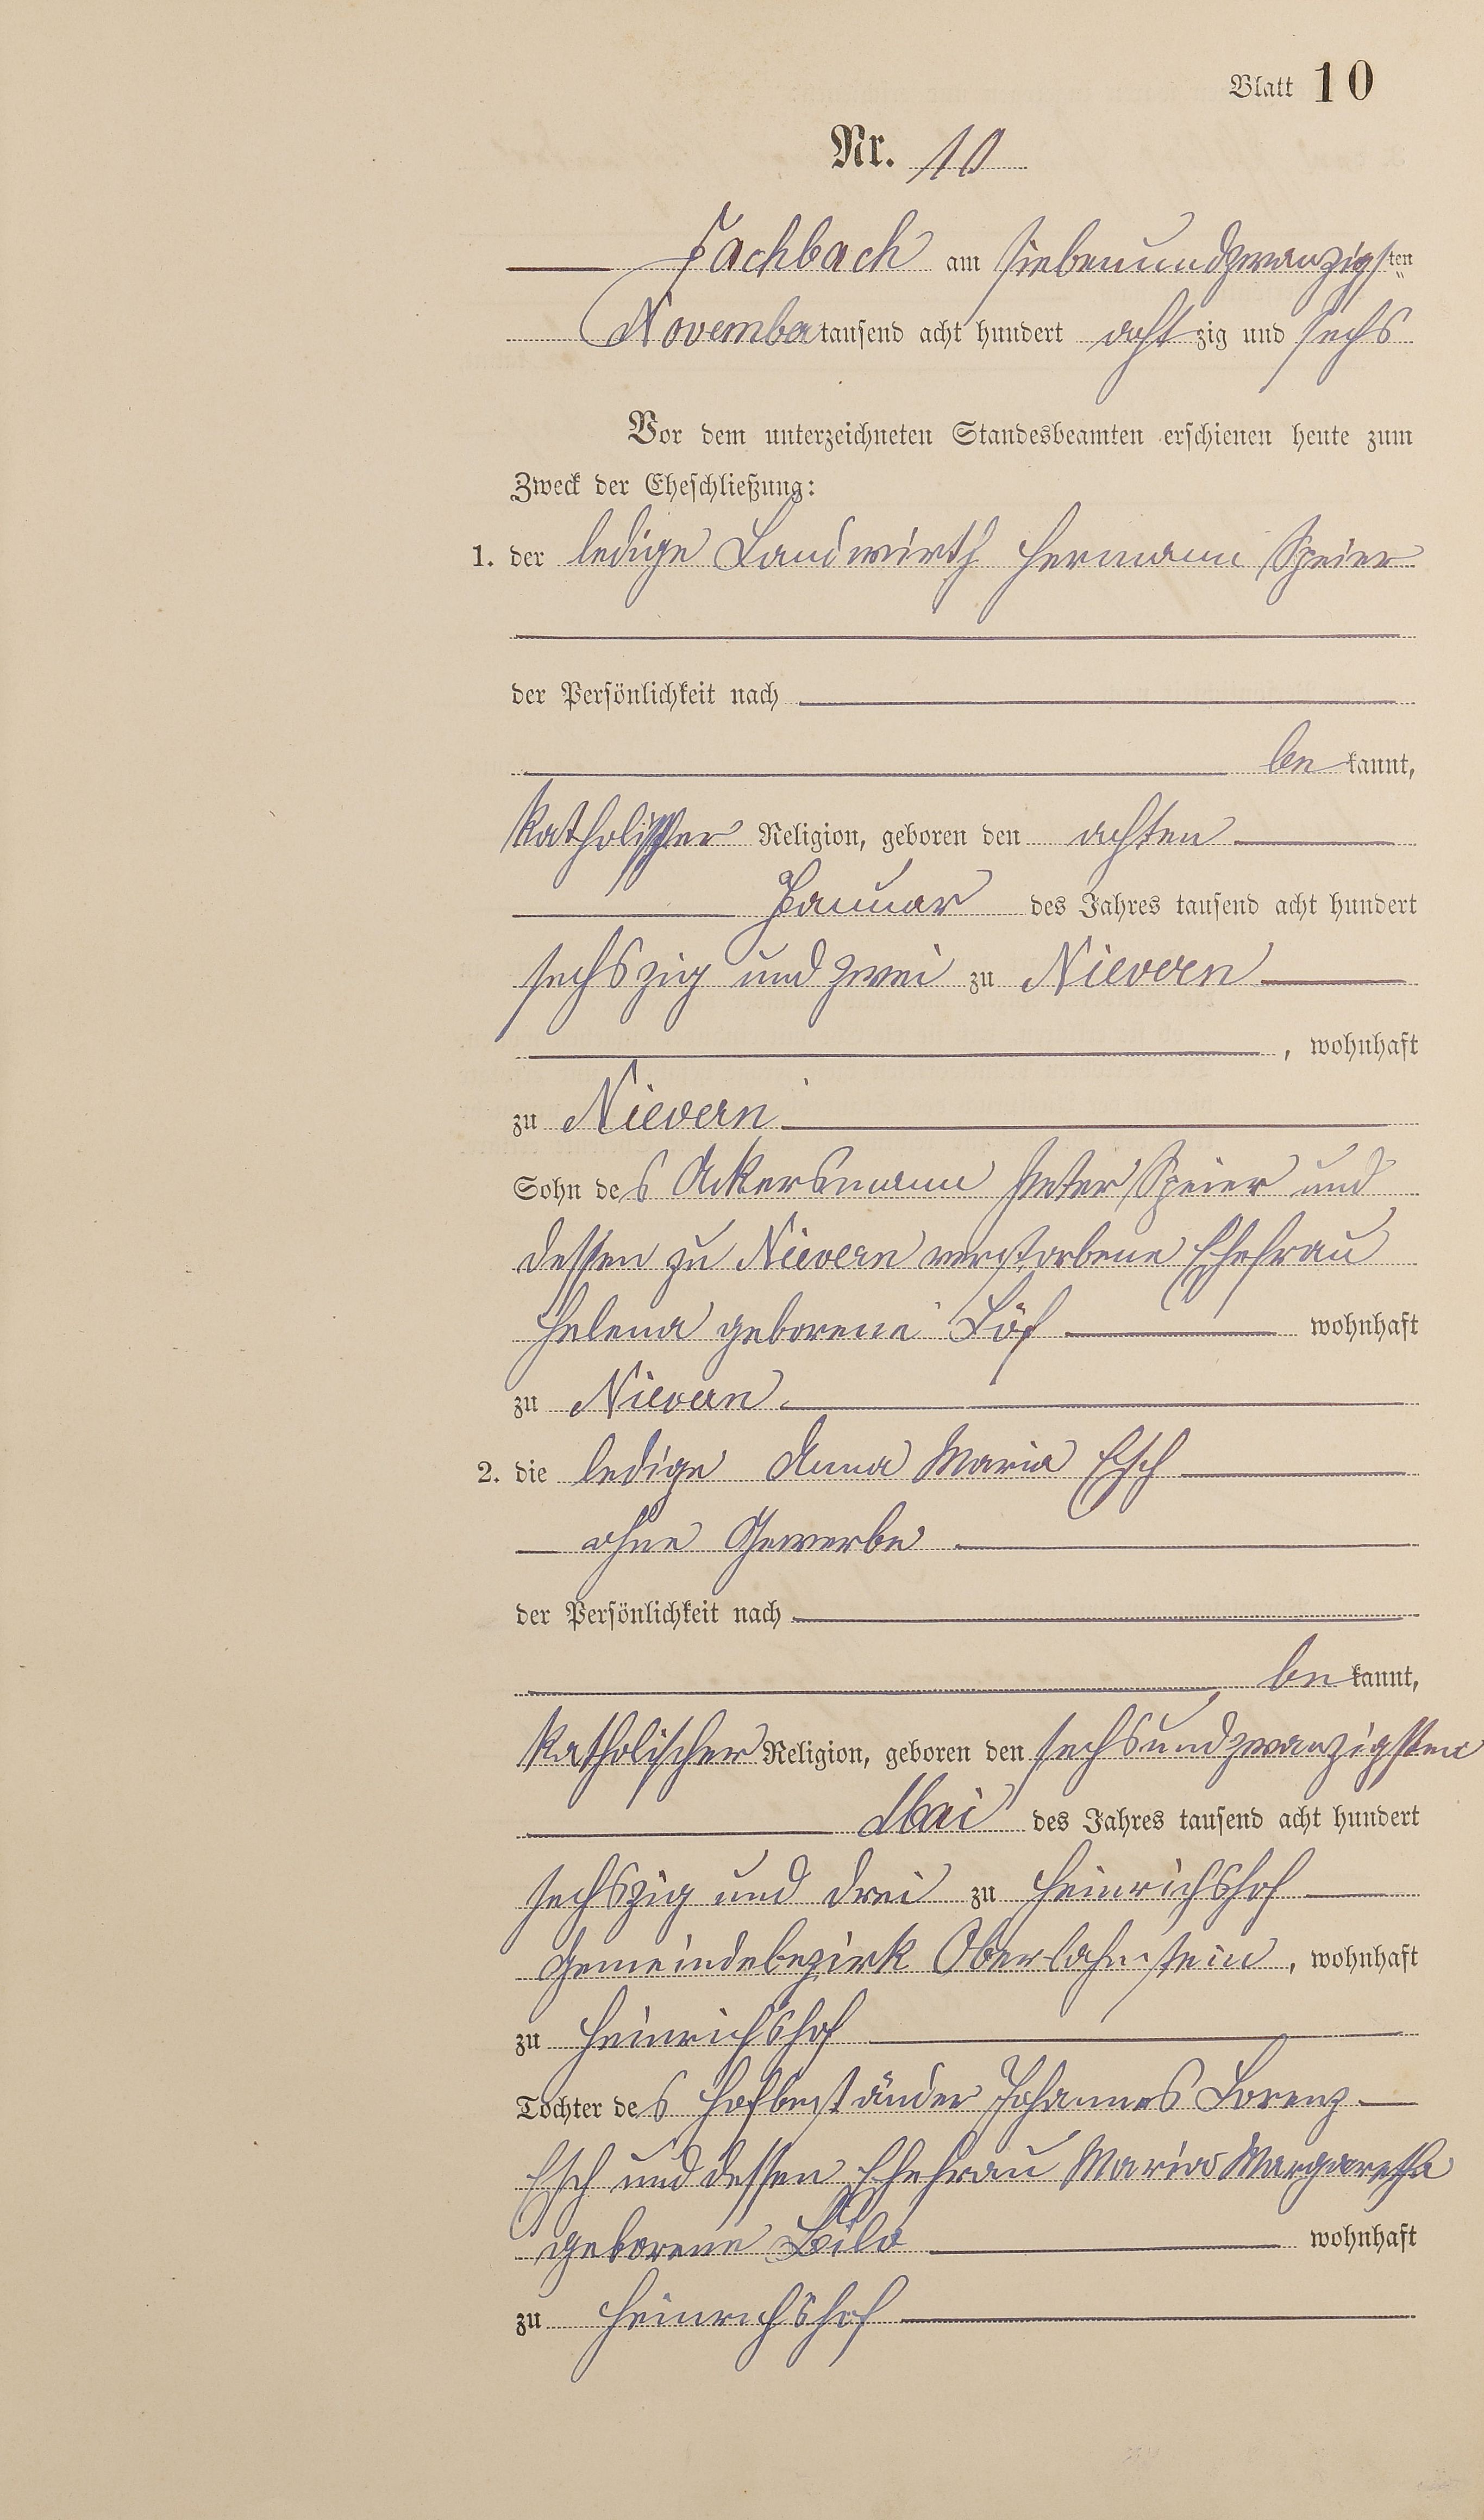 Blatt 10
Nr. 10
Fachbach am siebenundzwanzigsten
November tausend acht hundert achtzig und sechs
Vor dem unterzeichneten Standesbeamten erschienen heute zum
Zweck der Eheschließung:
1. der ledige Landwirth Hermann Speier
der Persönlichkeit nach
bekannt,
katholischer Religion, geboren den achten
Januar des Jahres tausend acht hundert
sechszig und zwei zu Nievern
, wohnhaft
zu Nievern
Sohn des Ackersmann Peter Speier und
dessen zu Nievern verstorbene Ehefrau
Helena geborene Löf wohnhaft
zu Nievern.
2. die ledige Anna Maria Esch
ohne Gewerbe
der Persönlichkeit nach
bekannt,
katholischer Religion, geboren den sechsundzwanzigsten
Mai des Jahres tausend acht hundert
sechszig und drei zu Heinrichshof
Gemeindebezirk Oberlahnstein, wohnhaft
zu Heinrichshof
Tochter des Hofbeständer Johannes Lorenz
Esch und dessen Ehefrau Maria Margaretha
geborene wohnhaft
zu Heinrichshof